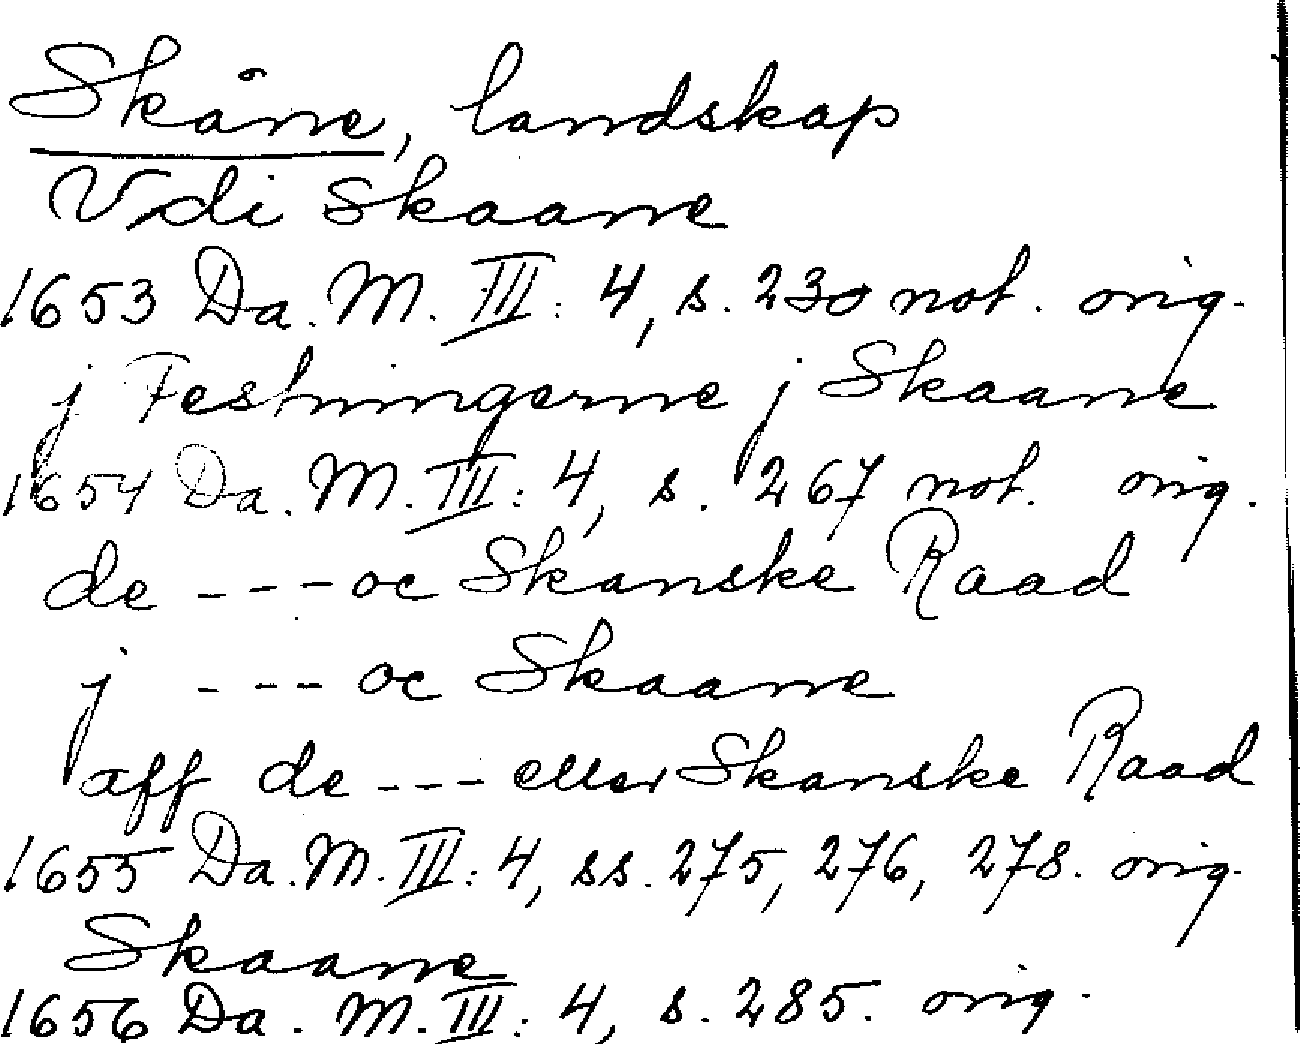 Skåne, landskap
Vdi Skaane
1653 Da. M. III: 4, s. 230 not. orig.
j Festningerne j Skaane
1654 Da. M. III: 4, s. 267 not. orig.
de --- oc Skanske Raad
j --- oc Skaane
aff de --- eller Skanske Raad
1655 Da. M. III: 4, ss. 275, 276, 278. orig.
Skaane
1656 Da. M. III: 4, s. 285. orig.